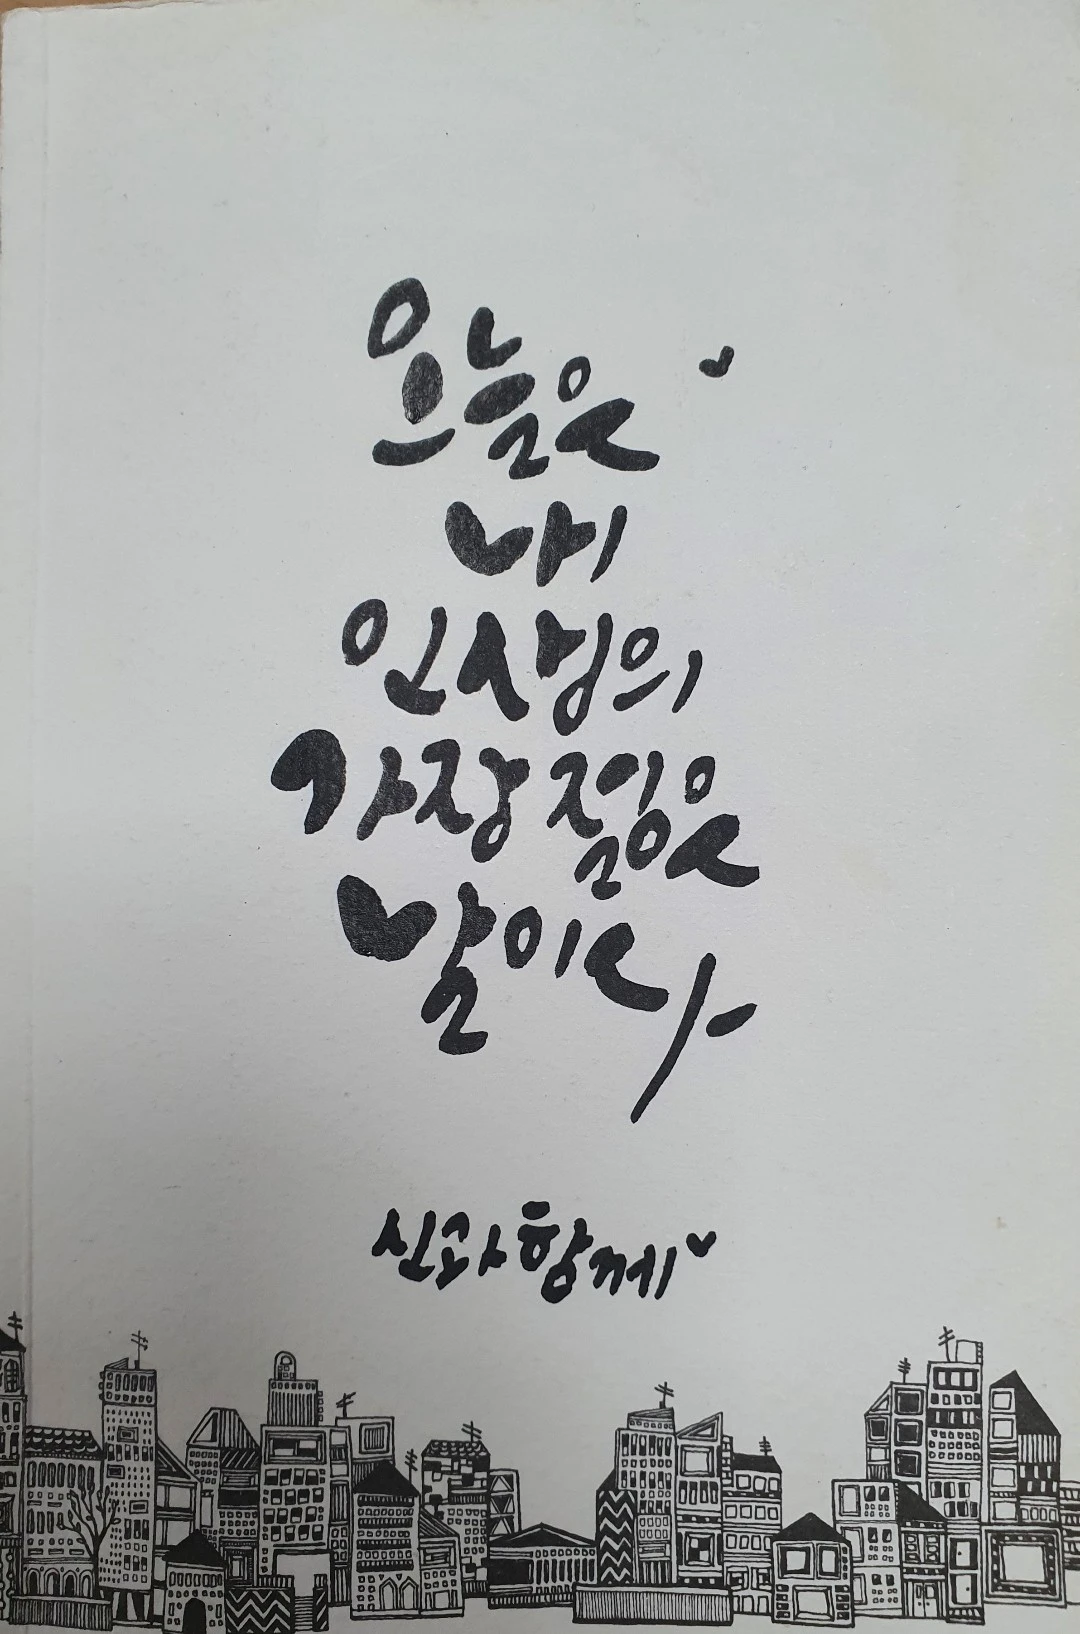 오늘은
내
인생의
가장 젊은
날이다
신과 함께